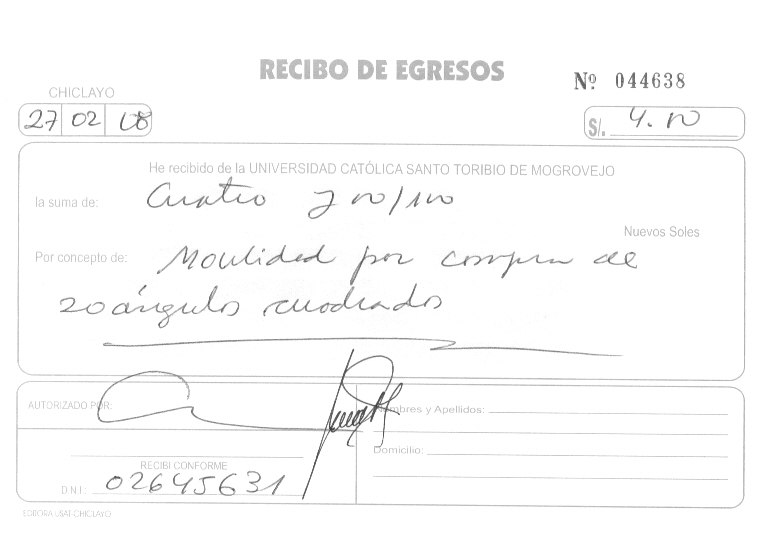 RECIBO DE EGRESOS
Nº 044638
CHICLAYO
27 02 08
S/. 4.00
He recibido de la UNIVERSIDAD CATÓLICA SANTO TORIBIO DE MOGROVEJO
la suma de: Cuatro y 00/100
Nuevos Soles
Por concepto de: Movilidad por compra de
20 ángulos cuadrados
AUTORIZADO POR:
Nombres y Apellidos:
Domicilio:
RECIBI CONFORME
DNI: 02645631
EDITORA USAT-CHICLAYO